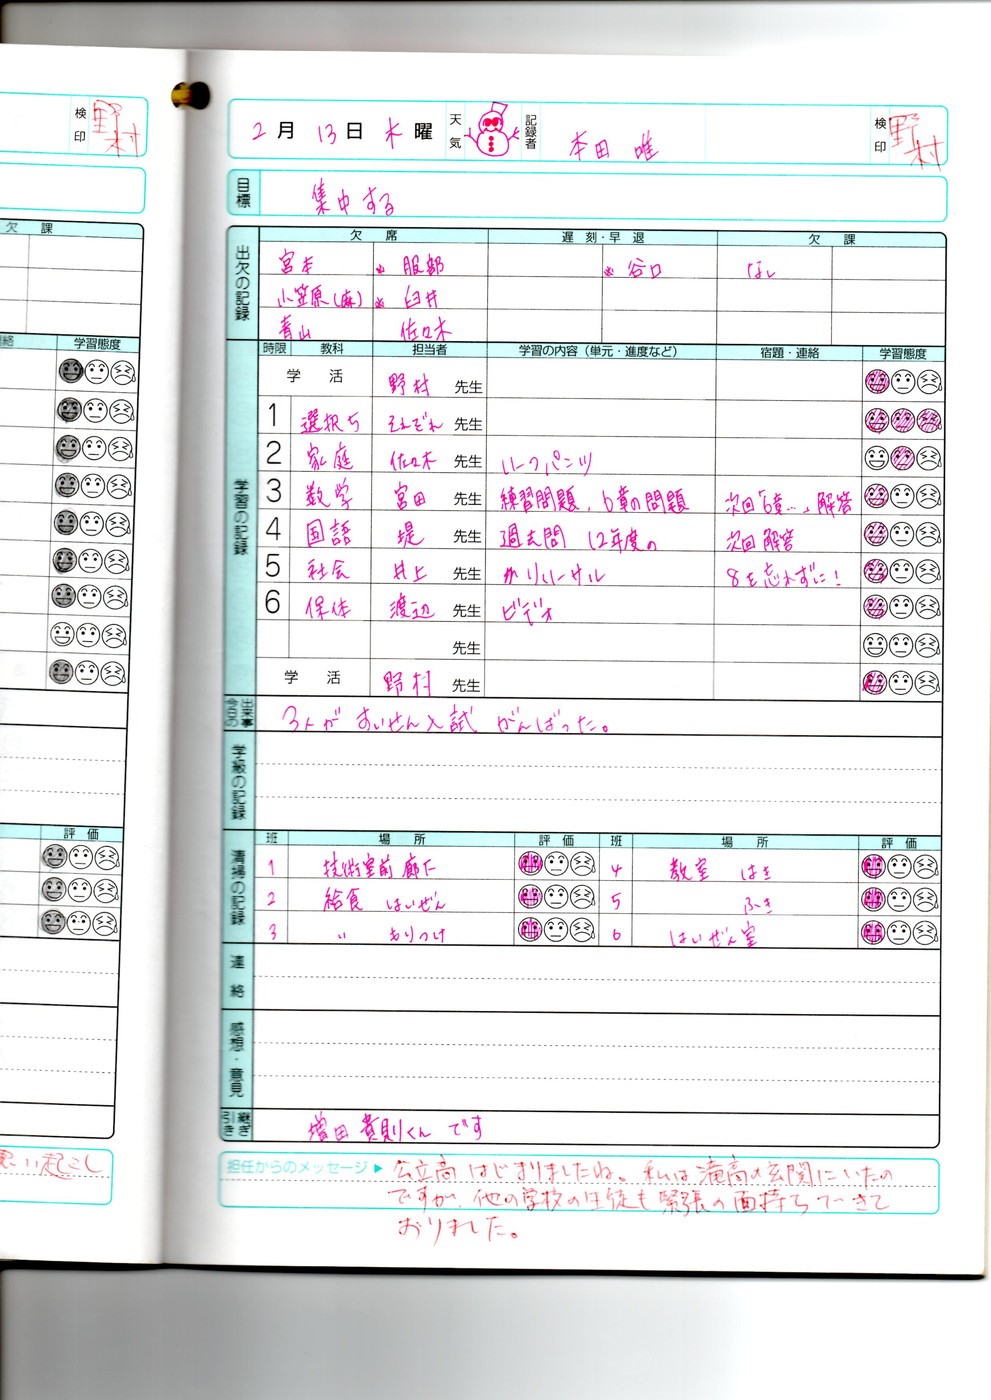 検印 野村
欠課
絡 学習態度
評価
起こし
2月 13日 木曜 天気 記録者 本田 唯 検印 野村
目標 集中する
出欠の記録
欠席 遅刻・早退 欠課
宮本 服部 谷口 なし
小笠原(麻) 臼井
青山 佐々木
学習の記録
時限 教科 担当者 学習の内容（単元・進度など） 宿題・連絡 学習態度
学活 野村 先生
1 選択5 それぞれ 先生
2 家庭 佐々木 先生 ハーフパンツ
3 数学 宮田 先生 練習問題、6章の問題 次回 6章… 解答
4 国語 堤 先生 過去問 12年度の 次回解答
5 社会 井上 先生 リハーサル 8を忘れずに！
6 保体 渡辺 先生 ビデオ
先生
学活 野村 先生
今日の出来事 3人がすいせん入試 がんばった。
学級の記録
清掃の記録
班 場所 評価 班 場所 評価
1 技術室前 廊下 4 教室 はき
2 給食 はいぜん 5 ふき
3 〃 もりつけ 6 はいぜん室
連絡
感想・意見
引き継ぎ 増田 貴則くん です
担任からのメッセージ▶ 公立高 はじまりましたね。私は滝高の玄関にいたの
ですが、他の学校の生徒も緊張の面持ちできて
おりました。